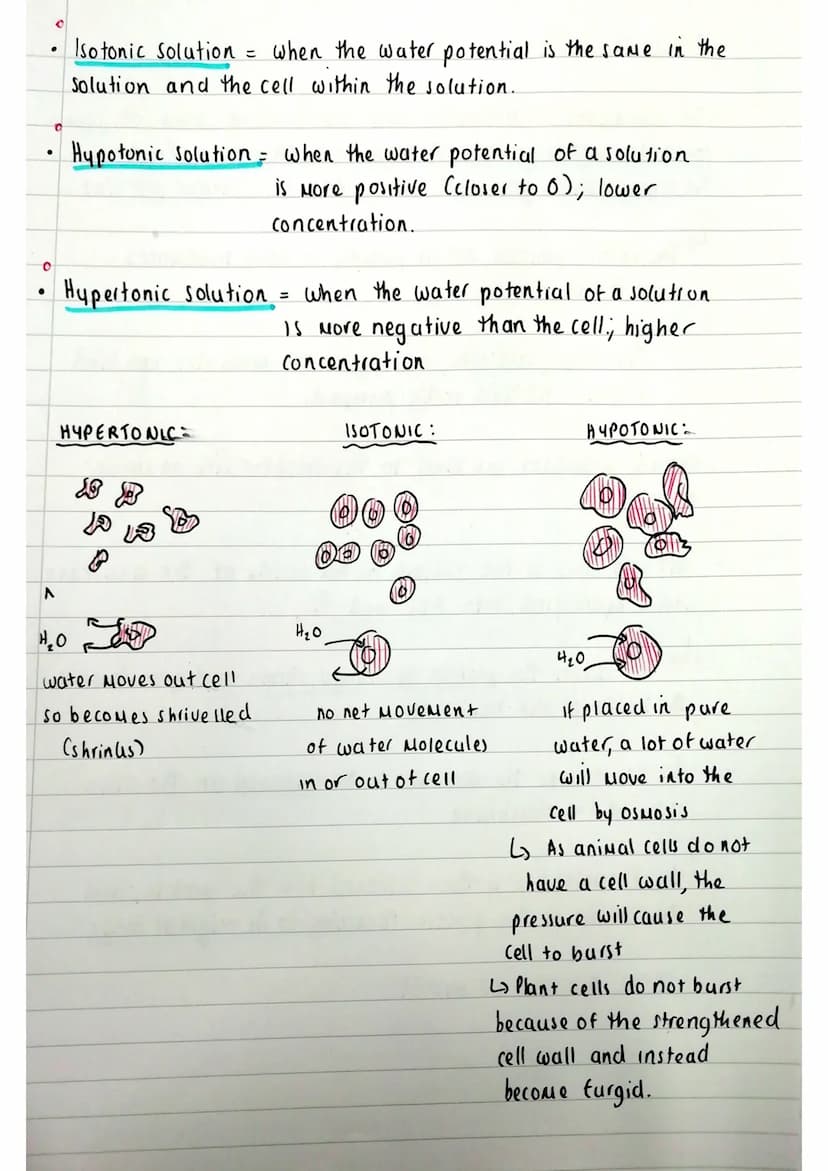 • Isotonic solution = when the water potential is the same in the
solution and the cell within the solution.
• Hypotonic solution = when the water potential of a solution
is more positive (closer to 0); lower
concentration.
• Hypertonic solution = when the water potential of a solution
is more negative than the cell; higher
concentration
HYPERTONIC:
H₂O
water moves out cell
so becomes shrivelled
(shrinks)
ISOTONIC:
H₂O
no net movement
of water molecules
in or out of cell
HYPOTONIC:
H₂O
if placed in pure
water, a lot of water
will move into the
cell by osmosis
↳ As animal cells do not
have a cell wall, the
pressure will cause the
cell to burst
↳ Plant cells do not burst
because of the strengthened
cell wall and instead
become turgid.